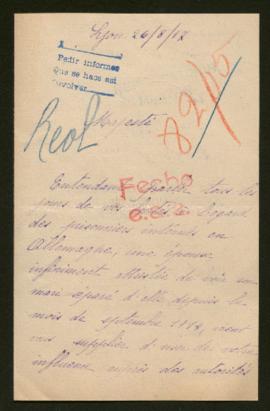 Lyon 26/8/17
Pedir informes
Que se hace así
Reol
82/15
Majesté
Fecho
Entendant parler tous les
jours de vos bontés à l'égard
des prisonniers internés en
Allemagne, une épouse
infiniment attristée de voir son
mari séparé d'elle depuis le
mois de septembre 1914, vient
vous supplier d'user de votre
influence auprès des autorités